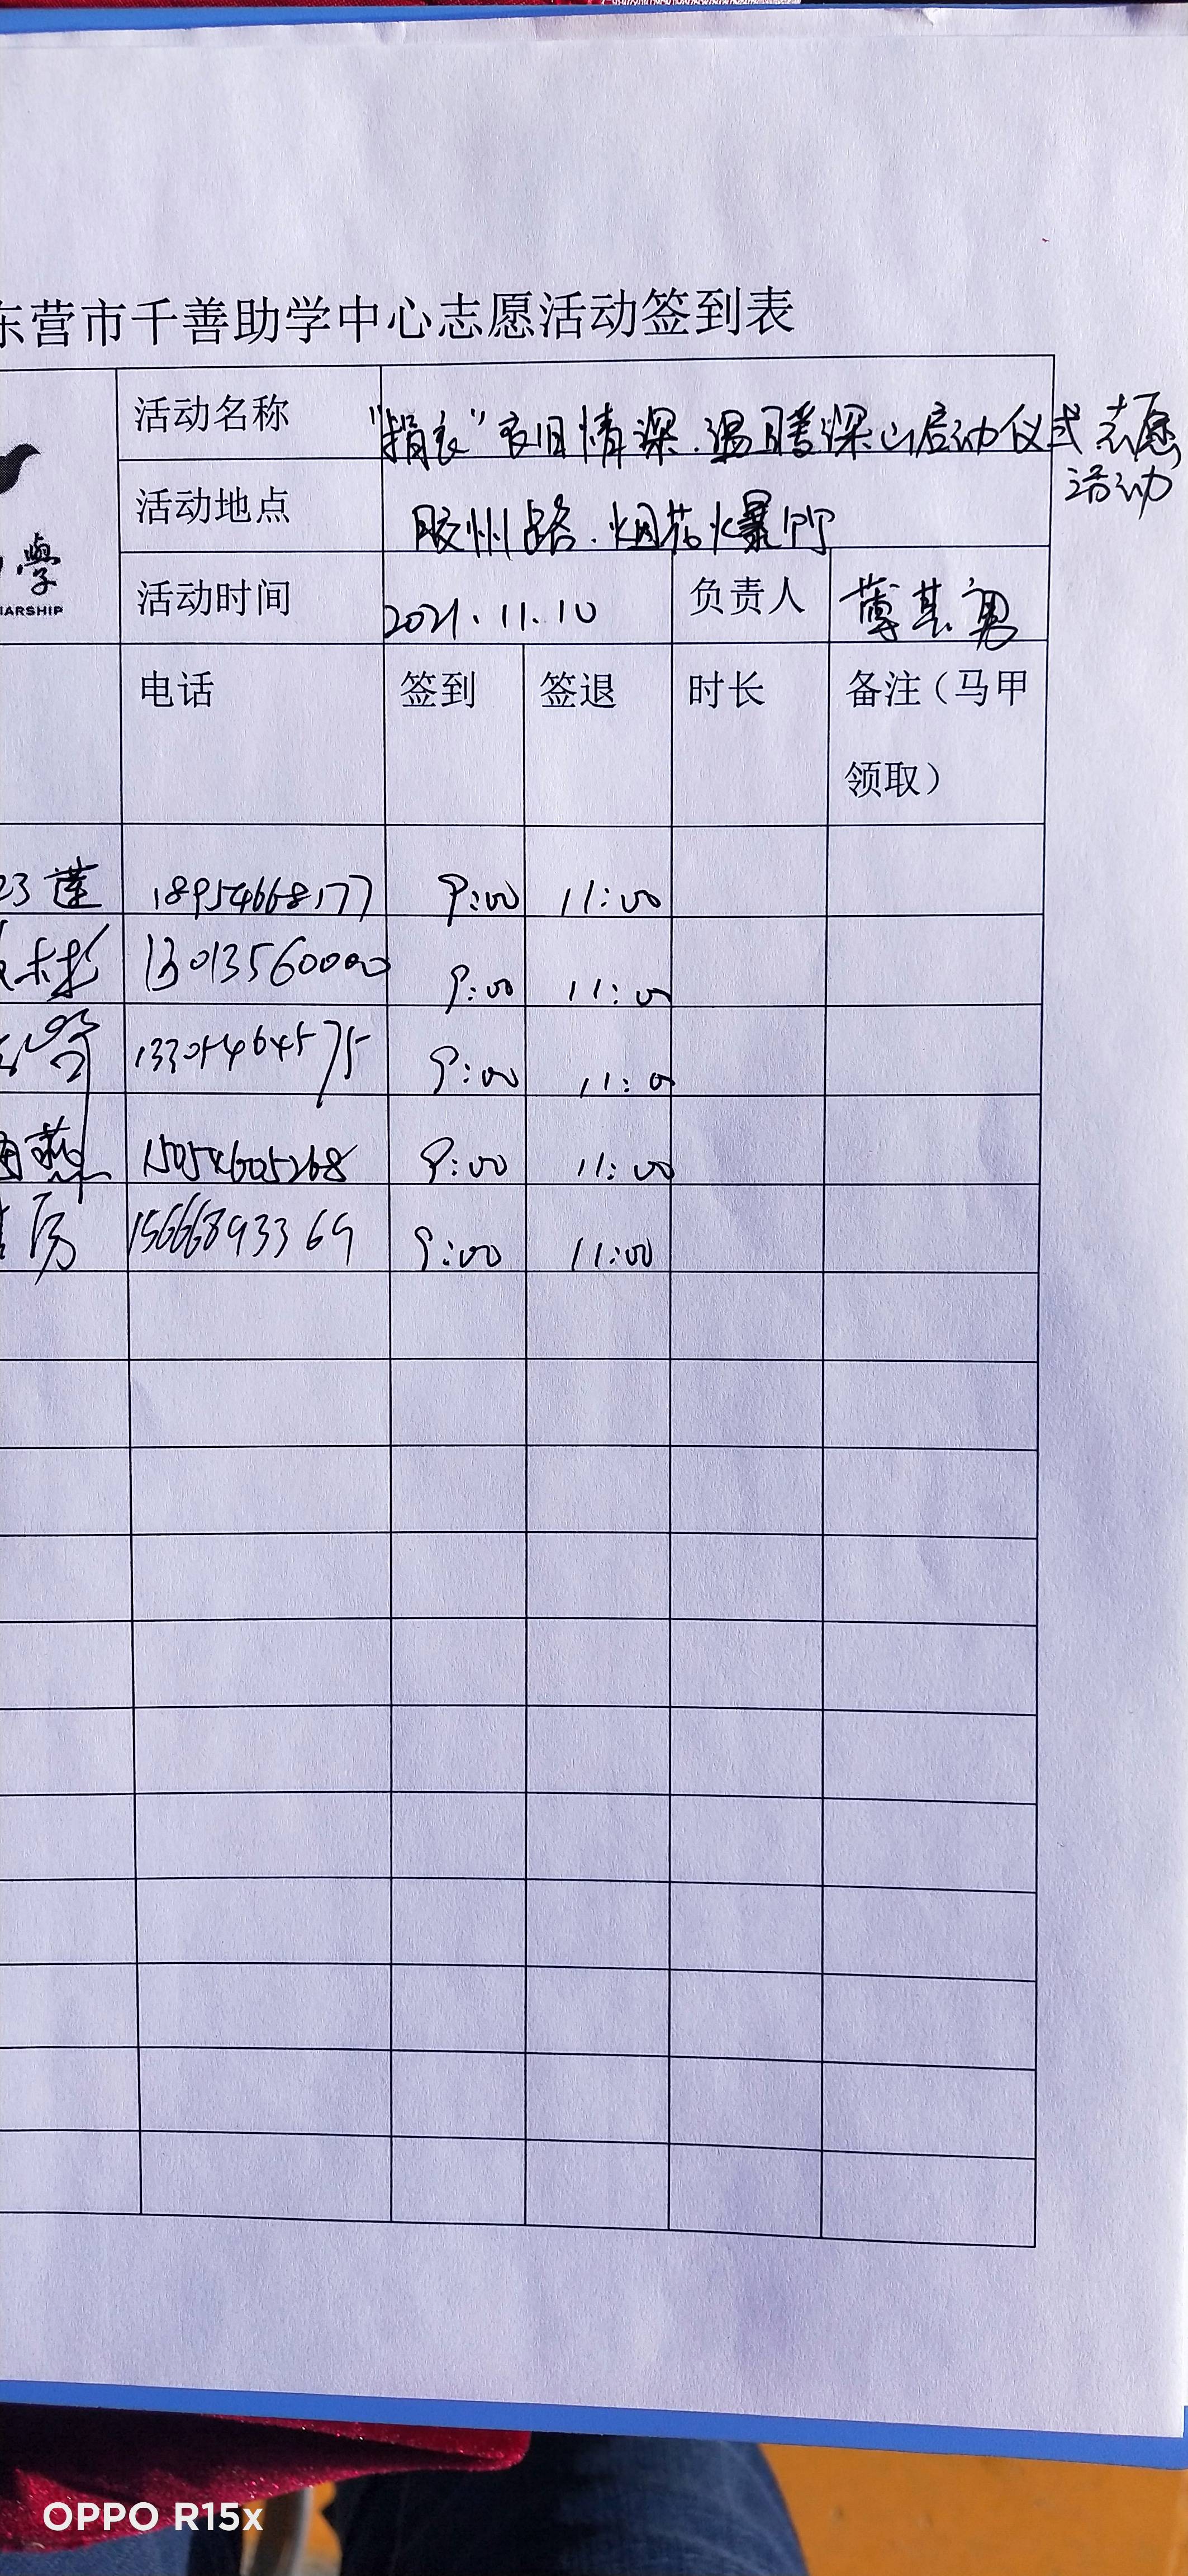 东营市千善助学中心志愿活动签到表
活动名称 "捐衣"衣旧情深.温暖深山启动仪式志愿
活动
活动地点 胶州路.烟花爆竹
學
ARSHIP
活动时间 2021.11.10 负责人 薄其勇
电话 签到 签退 时长 备注（马甲
领取）
莲 18954668177 9:00 11:00
彬 13013560000 9:00 11:00
13305464575 9:00 11:00
燕 15054605268 9:00 11:00
15666893369 9:00 11:00
OPPO R15x